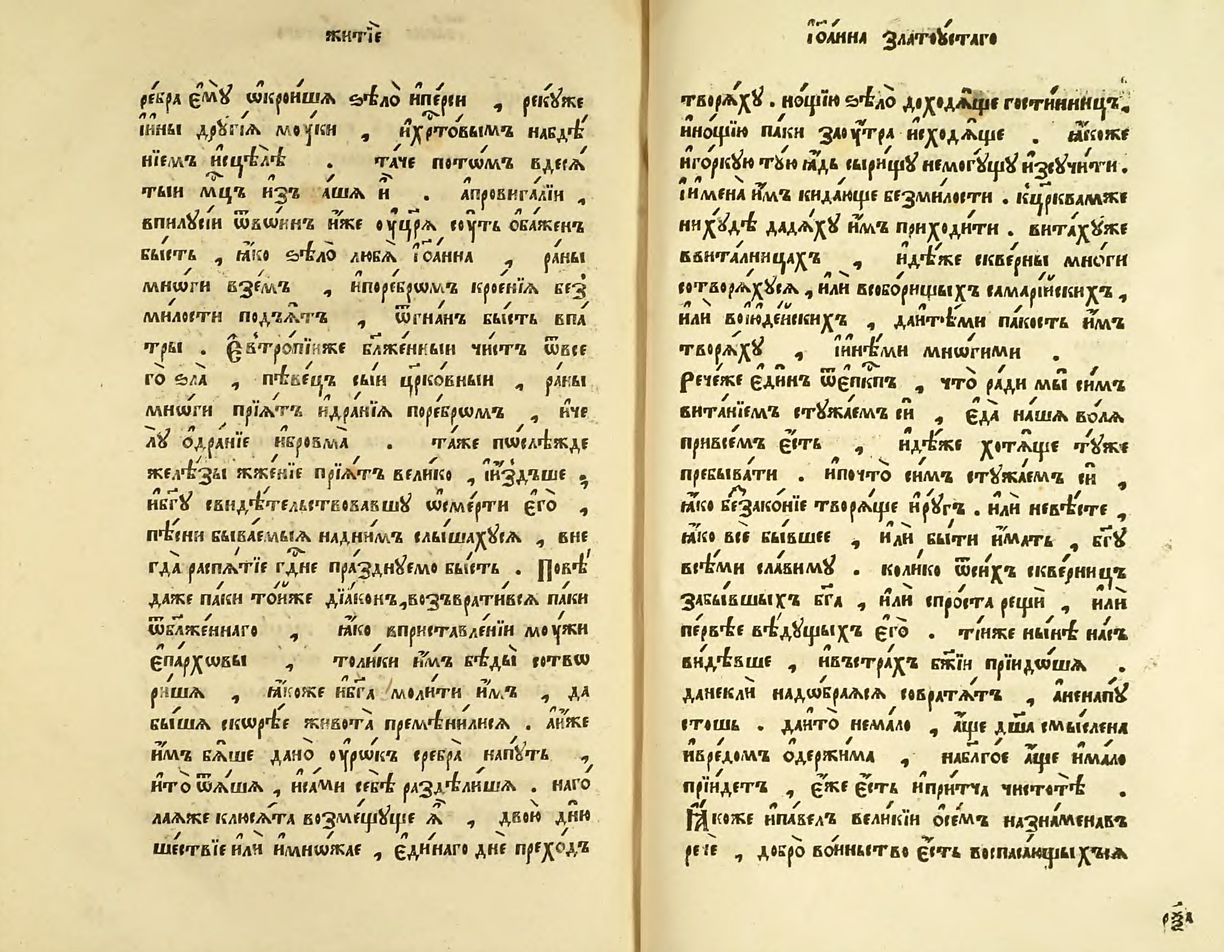 житїѐ
ре́бра є҆мꙋ̀ ѡ҆кро́ишѧ ѕѣлѡ̀ и҆пе́рси , ре́кꙋже
и҆и҆́ны дрꙋгі́ѧ моу́ки , и҆хрⷭ҇то́вымъ набдѣ́
нїемъ и҆сцѣлѣ̀ . та́че пото́мъ вдесѧ́
тыи мⷭ҇цъ и҆зъ а҆́шѧ и҆̀ . а҆провига́лїи ,
впилꙋсі́и ѿво́инъ и҆́же оу҆црѧ̀ соу́ть ѻ҆ба́женъ
бы́сть , ꙗ҆́ко ѕѣлѡ̀ любѧ̀ і҆ѻа́нна , ра́ны
мно́ги взе́мъ , и҆поре́брѡмъ крое́нїѧ без̾
ми́лости подъѧ́тъ , ѿгна́нъ бы́сть впа
тры̀ . Є҆ѵтро́пїиже бл҃же́нныи чи́стъ ѿвсе
го̀ ѕла̀ , пѣве́цъ сы́и цр҃ко́вныи , ра́ны
мнѡ́ги прїѧ́тъ и҆дра́нїѧ поре́брѡмъ , и҆че
лꙋ̀ ѻ҆дра́нїе и҆бровма̀ . та́же пѡслѣ́жде
желѣ́зы жже́нїе прїѧ́тъ вели́ко , и҆и҆́здъше ,
и҆бг҃ꙋ свидѣ́тельствовавшꙋ ѡ҆сме́рти є҆го̀ ,
пѣ́сни быва́емыѧ надни́мъ слы́шахꙋсѧ , вне
гда̀ распѧ́тїе гдⷭ҇не пра́зднꙋемо бы́сть . Повѣ́
даже па́ки то́йже дїа́конъ,возъврати́всѧ па́ки
ѿбл҃же́ннаго , ꙗ҆́ко вприставле́нїи мо́ужи
є҆па́рхѡвы , толи́ки и҆̀мъ бѣ́ды̀ сотвѡ
ри́шѧ , ꙗ҆́коже и҆бг҃а моли́ти и҆̀мъ , да
бы́шѧ скѡрѣ́е живота̀ премѣни́лисѧ . а҆и҆́же
и҆̀мъ бѧ́ше дано̀ оу҆ро́къ сребра̀ напꙋ́ть ,
и҆то̀ ѿѧ́шѧ , и҆са́ми себѣ̀ раздѣли́шѧ . наго́
лаѧже клюсѧ́та возме́щꙋще ѧ҆̀ , двою̀ дню̀
ше́ствїе и҆лѝ и҆мно́жае , є҆ди́наго днѐ прехо́дъ
і҆ѻа́нна златоꙋ́стаго
творѧ́хꙋ . но́щїю ѕѣлѡ̀ доходѧ́ще гости́нницъ,
и҆но́щїю па́ки заоу́тра и҆сходѧ́ще . ꙗ҆́коже
и҆го́ркꙋю тꙋ́ю ꙗ҆́дь сыри́щꙋ немогꙋ́щꙋ и҆зсꙋчи́ти .
і҆имена̀ и҆̀мъ кида́юще безми́лости . кцр҃квамже
нихꙋдѣ̀ дадѧ́хꙋ и҆̀мъ приходи́ти . вита́хꙋже
ввита́лницахъ , и҆дѣ́же скве́рны мнѡ́ги
сотворѧ́хꙋсѧ , и҆лѝ всобо́рищыхъ самарі́йскихъ ,
и҆лѝ воі҆юде́йскихъ , дай́тѣми па́кость и҆̀мъ
творѧ́хꙋ , і҆и҆нѣ́ми мно́гими .
Рече́же є҆ди́нъ ѿє҆пⷭ҇кпъ , что̀ ра́ди мы̀ си́мъ
вита́нїемъ стꙋжа́емъ сѝ , є҆да̀ на́шѧ во́лѧ
привсе́мъ є҆́сть , и҆дѣ́же хотѧ́ще тꙋ́же
пребыва́ти . и҆почто̀ си́мъ стꙋжа́емъ сѝ ,
ꙗ҆́ко беззако́нїе творѧ́ще и҆рꙋ́гъ . и҆лѝ невѣ́сте ,
ꙗ҆́ко всѐ бы́вшее , и҆лѝ бы́ти и҆́мать , бг҃ꙋ
всѣ́ми сла́вимꙋ . коли́ко ѿси́хъ скве́рницъ
забы́вшыхъ бг҃а , и҆лѝ спро́ста рещѝ , и҆лѝ
пе́рвѣе вѣ́дꙋщыхъ є҆го̀ . ті́иже ны́нѣ на́съ
ви́дѣвше , и҆въстра́хъ бж҃їи прїидо́шѧ .
данеклѝ надѡ́браѧсѧ совратѧ́тъ , а҆ненапꙋ
стошь . даи҆то̀ нема́ло , а҆́ще дш҃а смы́слена
и҆вре́домъ ѻ҆держи́ма , набл҃го́е а҆́ще и҆ма́ло
прїи́детъ , є҆́же є҆́сть и҆при́тча чистотѣ̀ .
Ꙗ҆́коже и҆па́велъ вели́кїи ѻ҆се́мъ назна́менавъ
речѐ , добро̀ во́иньство є҆́сть воспаса́ющыхъсѧ
рѯ҃а